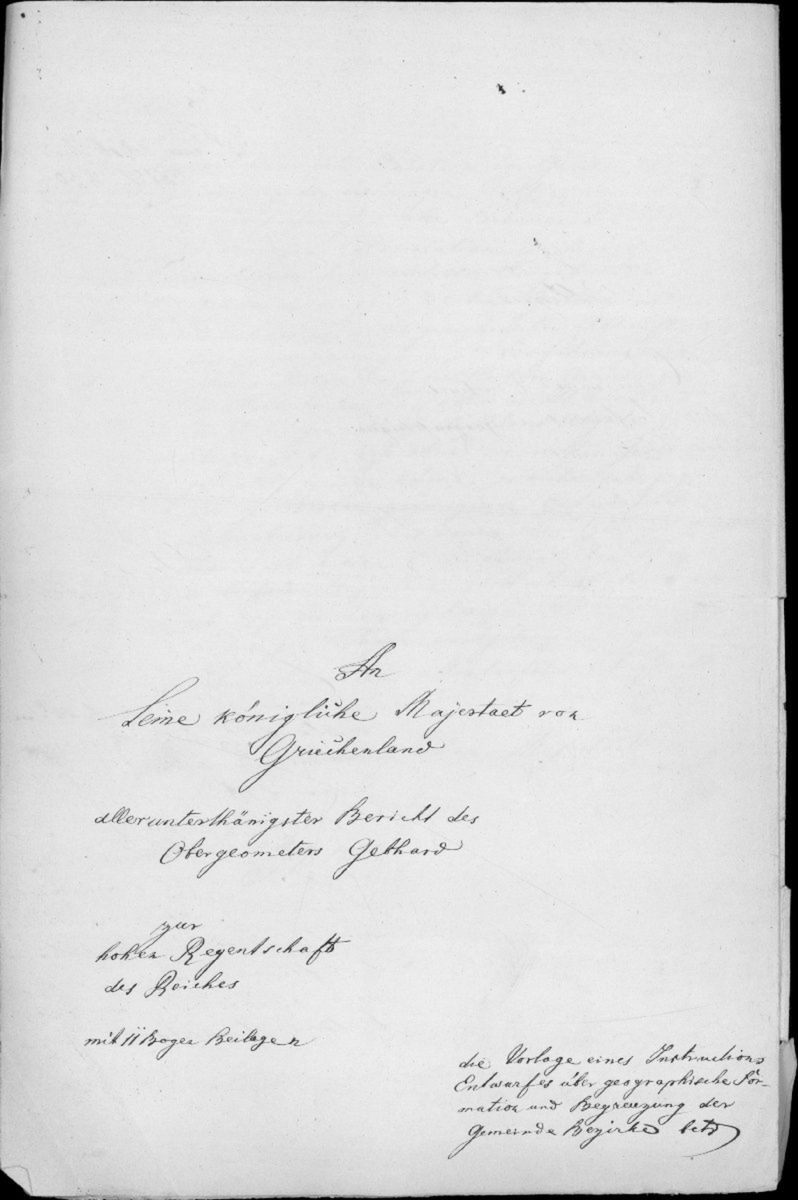 An
Seine königliche Majestaet von
Griechenland
allerunterthänigster Bericht des
Obergeometers Gebhard
zur
hohen Regentschaft
des Reiches
mit 11 Bogen Beilagen
die Vorlage eines Instructions
Entwurfes über geographische For-
mation und Begrenzung der
Gemeinde Bezirke betr